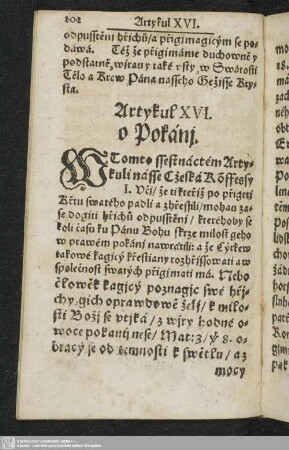 202
Artykul XVI.
odpusstěnj hřjchů/a přigjmagicým se po-
dáwá. Též že přigjmáme duchowně y
podstatně, wjrau y také vsty, w Swátosti
Tělo a Krew Pána nasseho Gežjsse Kry-
sta.
Artykul XVI.
o Pokánj.
W Tomto ssestnáctém Arty-
kuli násse Cžeská Kõffessy
I. Včj/ že ti kteřjž po přigetj
Křtu swatého padli a zhřessili/mohau za-
se dogiti hřjchů odpusstěnj/ kteréhoby se
koli času ku Pánu Bohu skrze milost geho
w prawém pokánj nawrátili: a že Cýrkew
takowé kagicý křestiany rozhřissowati a w
společnost swatých přigjmati má. Nebo
člowěk kagicý poznagje swé hřj-
chy, gich oprawdowě želj/ k milo-
sti Božj se vtjká/ z wjry hodné o-
woce pokánij nese/ Mat: 3/ ꝟ 8. o-
bracý se od temnosti k swětlu/ a z
mocy